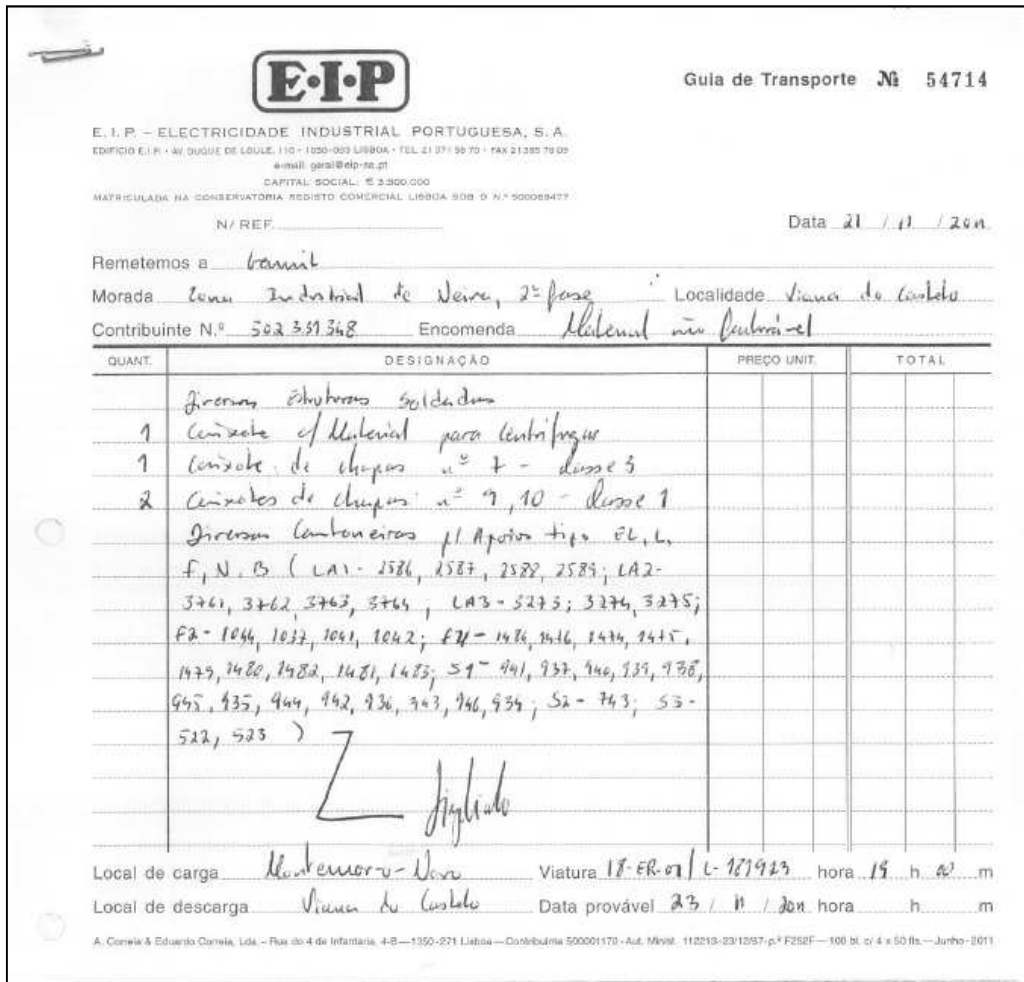 E·I·P
Guia de Transporte № 54714
E. I. P. – ELECTRICIDADE INDUSTRIAL PORTUGUESA, S. A.
EDIFÍCIO E.I.P. • AV. DUQUE DE LOULÉ, 110 • 1050-093 LISBOA • TEL. 21 371 50 70 • FAX 21 385 78 09
e-mail: geral@eip-sa.pt
CAPITAL SOCIAL: € 3.900.000
MATRICULADA NA CONSERVATÓRIA REGISTO COMERCIAL LISBOA SOB O N.º 500089477
N/ REF.
Data 21 / 11 / 2011
Remetemos a
Morada Zona Industrial de Neiva, 2ª fase Localidade Viana do Castelo
Contribuinte N.º 502 331 348 Encomenda Material não
QUANT. DESIGNAÇÃO PREÇO UNIT. TOTAL
Diversas Estruturas Soldadas
1 Caixote c/ Material para Centrifugar
1 Caixote de chapas nº 7 - classe 3
2 Caixotes de chapas nº 9, 10 - classe 1
Diversas Cantoneiras p/ Apoios tipo EL, L,
F, N, B ( LA1 - 2586, 2587, 2588, 2589; LA2-
3761, 3762, 3763, 3764, LA3 - 3273; 3274, 3275;
F2 - 1044, 1037, 1041, 1042; F4 - 1484, 1476, 1474, 1475,
1479, 1480, 1482, 1481, 1483; S1 - 941, 937, 940, 939, 938,
945, 935, 944, 942, 936, 943, 946, 934; S2 - 743; S3-
522, 523 )
Local de carga Montemor-o-Novo Viatura 18-ER-07 / L-181923 hora 15 h 00 m
Local de descarga Viana do Castelo Data provável 23 / 11 / 2011 hora h m
A. Correia & Eduardo Correia, Lda. – Rua do 4 de Infantaria, 4-B — 1350-271 Lisboa — Contribuinte 500001170 - Aut. Minist. 112213-23/12/97-p.ª F2S2F — 100 bl. c/ 4 x 50 fls. — Junho - 2011